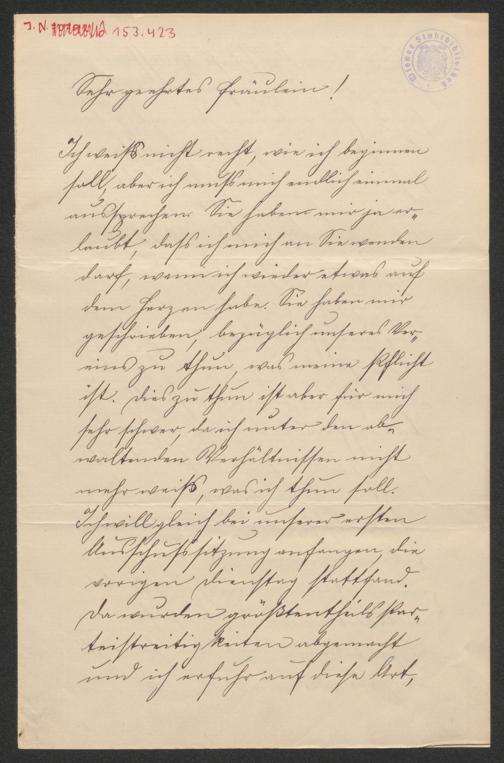 J. N. 153.423
Wiener Stadtbibliothek
Sehr geehrtes Fräulein!
Ich weiß nicht recht, wie ich beginnen
soll, aber ich muß mich endlich einmal
aussprechen. Sie haben mir ja er-
laubt, daß ich mich an Sie wenden
darf, wenn ich wieder etwas auf
dem Herzen habe. Sie haben mir
geschrieben, bezüglich unseres Ver-
eins zu thun, was meine Pflicht
ist. Dies zu thun ist aber für mich
sehr schwer, da ich unter den ob-
waltenden Verhältnissen nicht
mehr weiß, was ich thun soll.
Ich will gleich bei unserer ersten
Ausschußsitzung anfangen, die
vorigen Dienstag stattfand.
Da wurden größtentheils Par-
teistreitigkeiten abgemacht
und ich erfuhr auf diese Art,